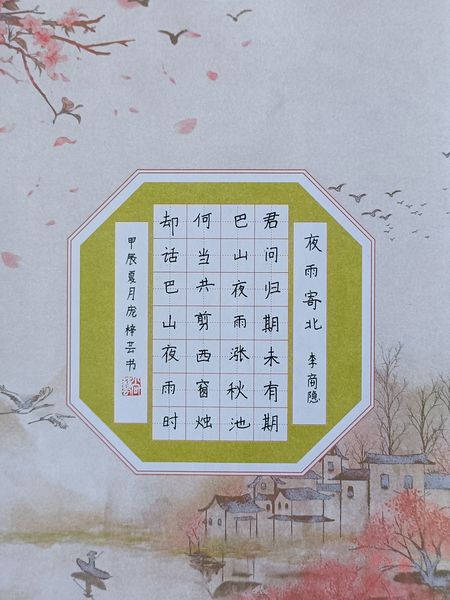 夜雨寄北 李商隐
君问归期未有期
巴山夜雨涨秋池
何当共剪西窗烛
却话巴山夜雨时
甲辰夏月庞梓芸书